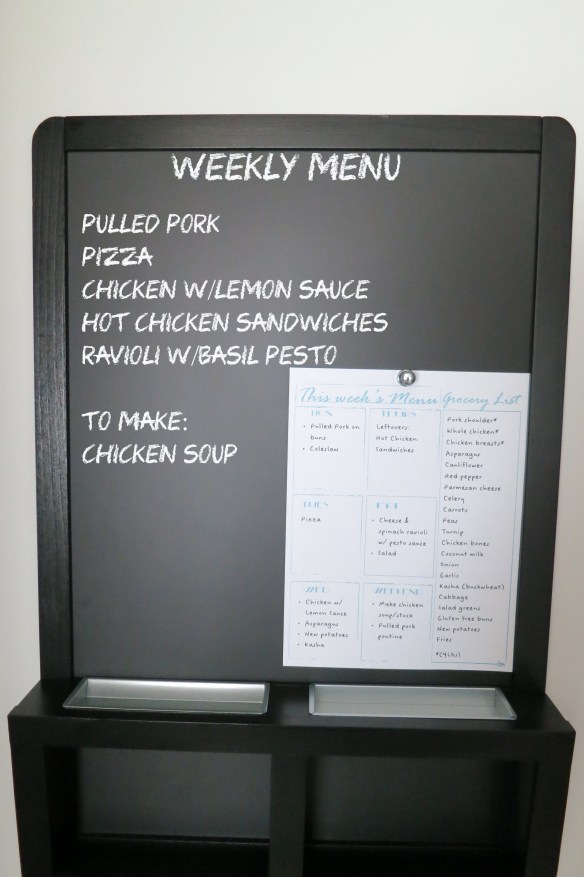 WEEKLY MENU
PULLED PORK
PIZZA
CHICKEN W/LEMON SAUCE
HOT CHICKEN SANDWICHES
RAVIOLI W/BASIL PESTO
TO MAKE:
CHICKEN SOUP
This week's Menu
MON
• Pulled Pork on
buns
• Coleslaw
THURS
Leftovers:
Hot Chicken
Sandwiches
TUES
Pizza
FRI
• Cheese &
spinach ravioli
w/ pesto sauce
• Salad
WED
• Chicken w/
Lemon Sauce
• Asparagus
• New potatoes
• Kasha
WEEKEND
• Make chicken
soup/stock
• Pulled pork
poutine
Grocery List
Pork shoulder*
Whole chicken*
Chicken breasts*
Asparagus
Cauliflower
Red pepper
Parmesan cheese
Celery
Carrots
Peas
Turnip
Chicken bones
Coconut milk
Onion
Garlic
Kasha (buckwheat)
Cabbage
Salad greens
Gluten free buns
New potatoes
Fries